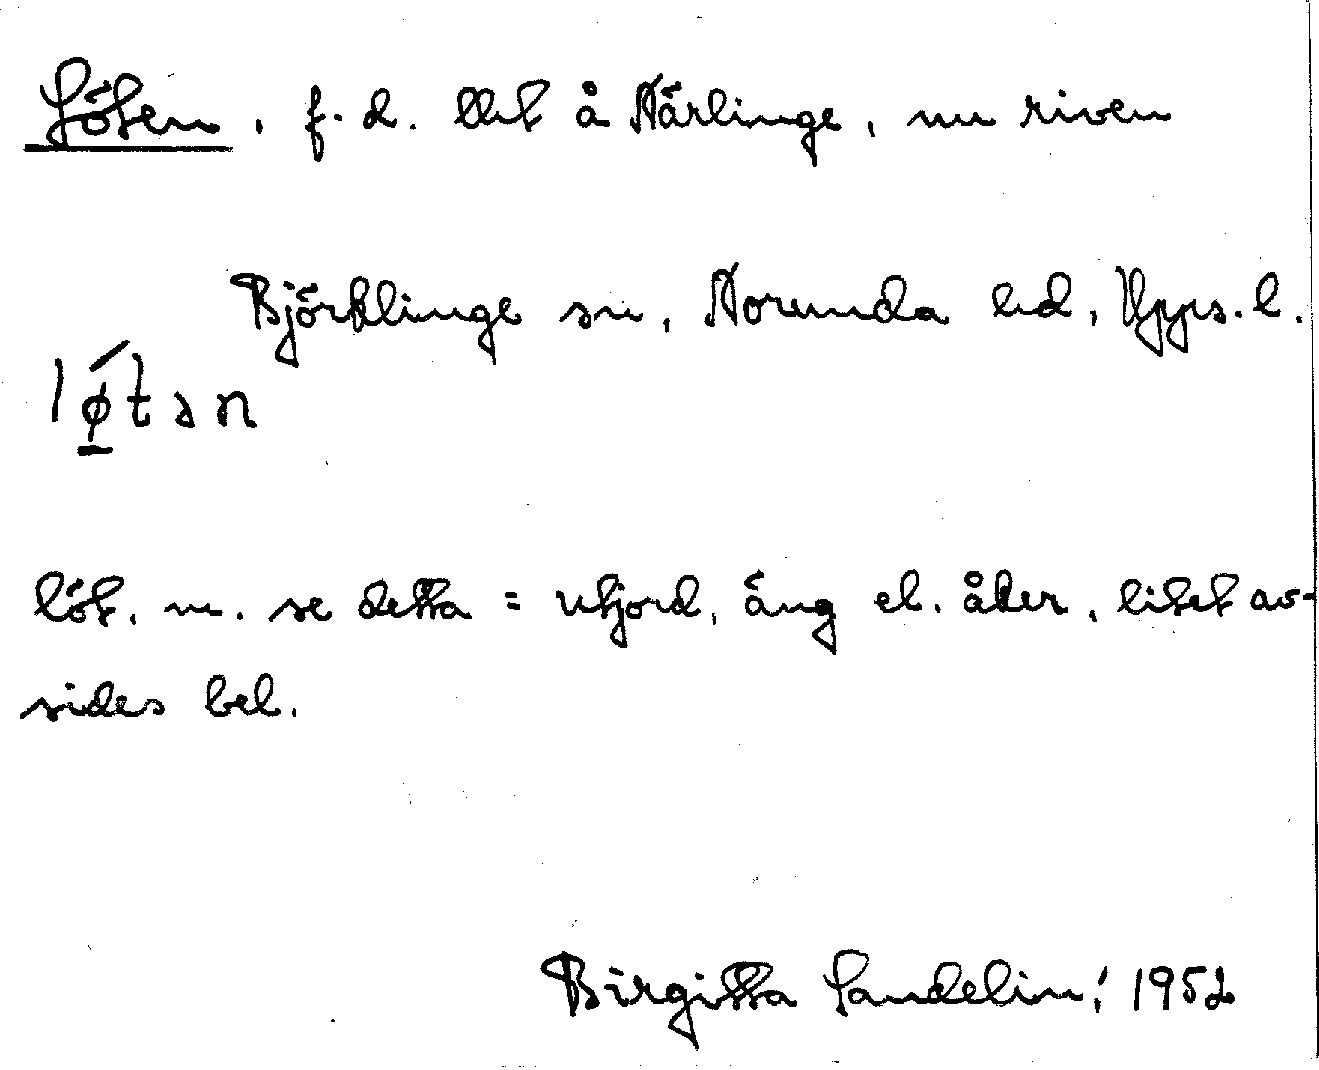 Löten, f.d. llt å Närlinge, nu riven
Björklinge sn, Norunda hd, Upps. l.
lǿ̠tən
löt. m. se detta = utjord, äng el. åker, litet av-
sides bel.
Birgitta Sandelin, 1952